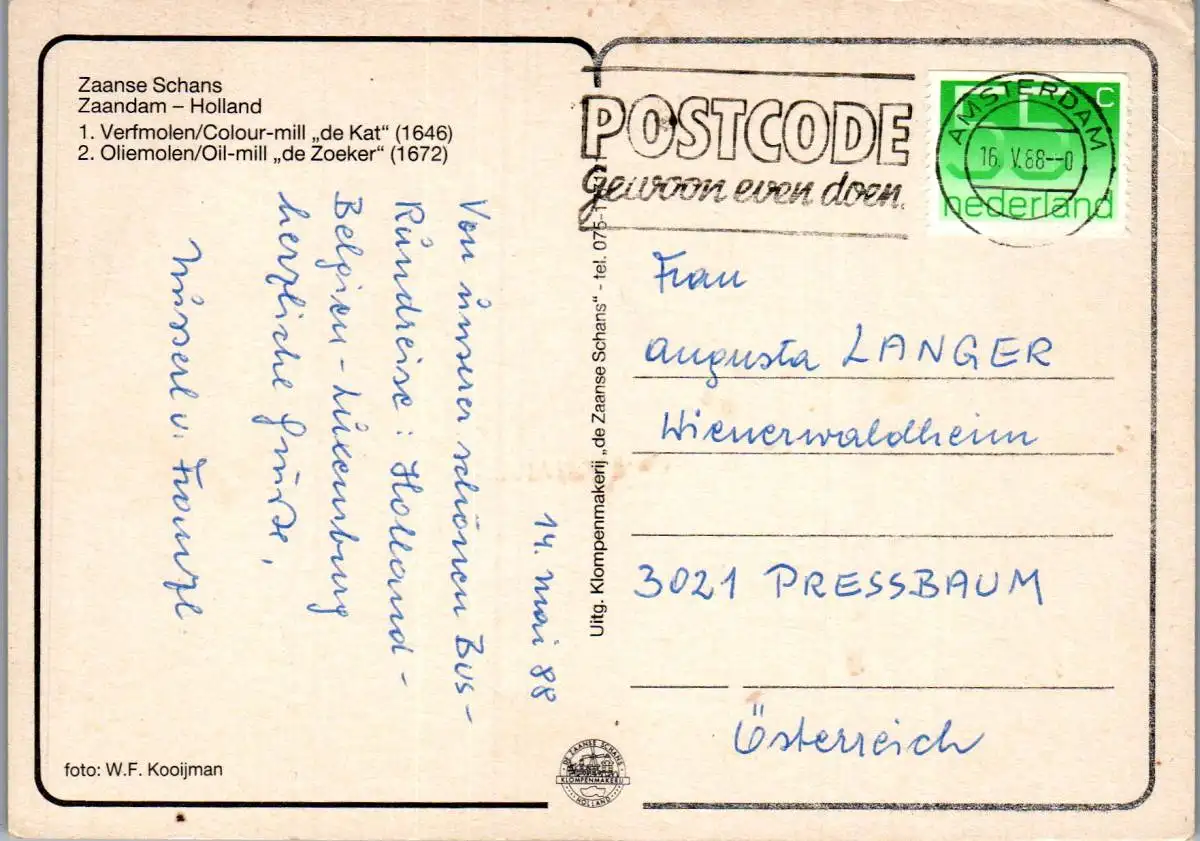 Zaanse Schans
Zaandam – Holland
1. Verfmolen/Colour-mill „de Kat" (1646)
2. Oliemolen/Oil-mill „de Zoeker" (1672)
14. Mai 88
Von unserer schönen Bus-
Rundreise: Holland-
Belgien-Luxemburg
herzliche Grüsse,
u. Franzl
foto: W.F. Kooijman
Uitg. Klompenmakerij „de Zaanse Schans" - tel. 075-
DE ZAANSE SCHANS
KLOMPENMAKERIJ
HOLLAND
POSTCODE
gewoon even doen.
55 C
nederland
AMSTERDAM
16. V.88--0
Frau
Augusta LANGER
Wienerwaldheim
3021 PRESSBAUM
Österreich